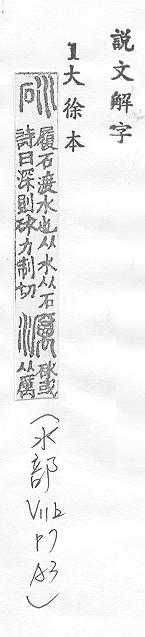 說文解字
1大徐本
砅 履石渡水也从水从石
詩曰深則砅力制切
濿 砅或
从厲
(水部 V11b P7 A3)